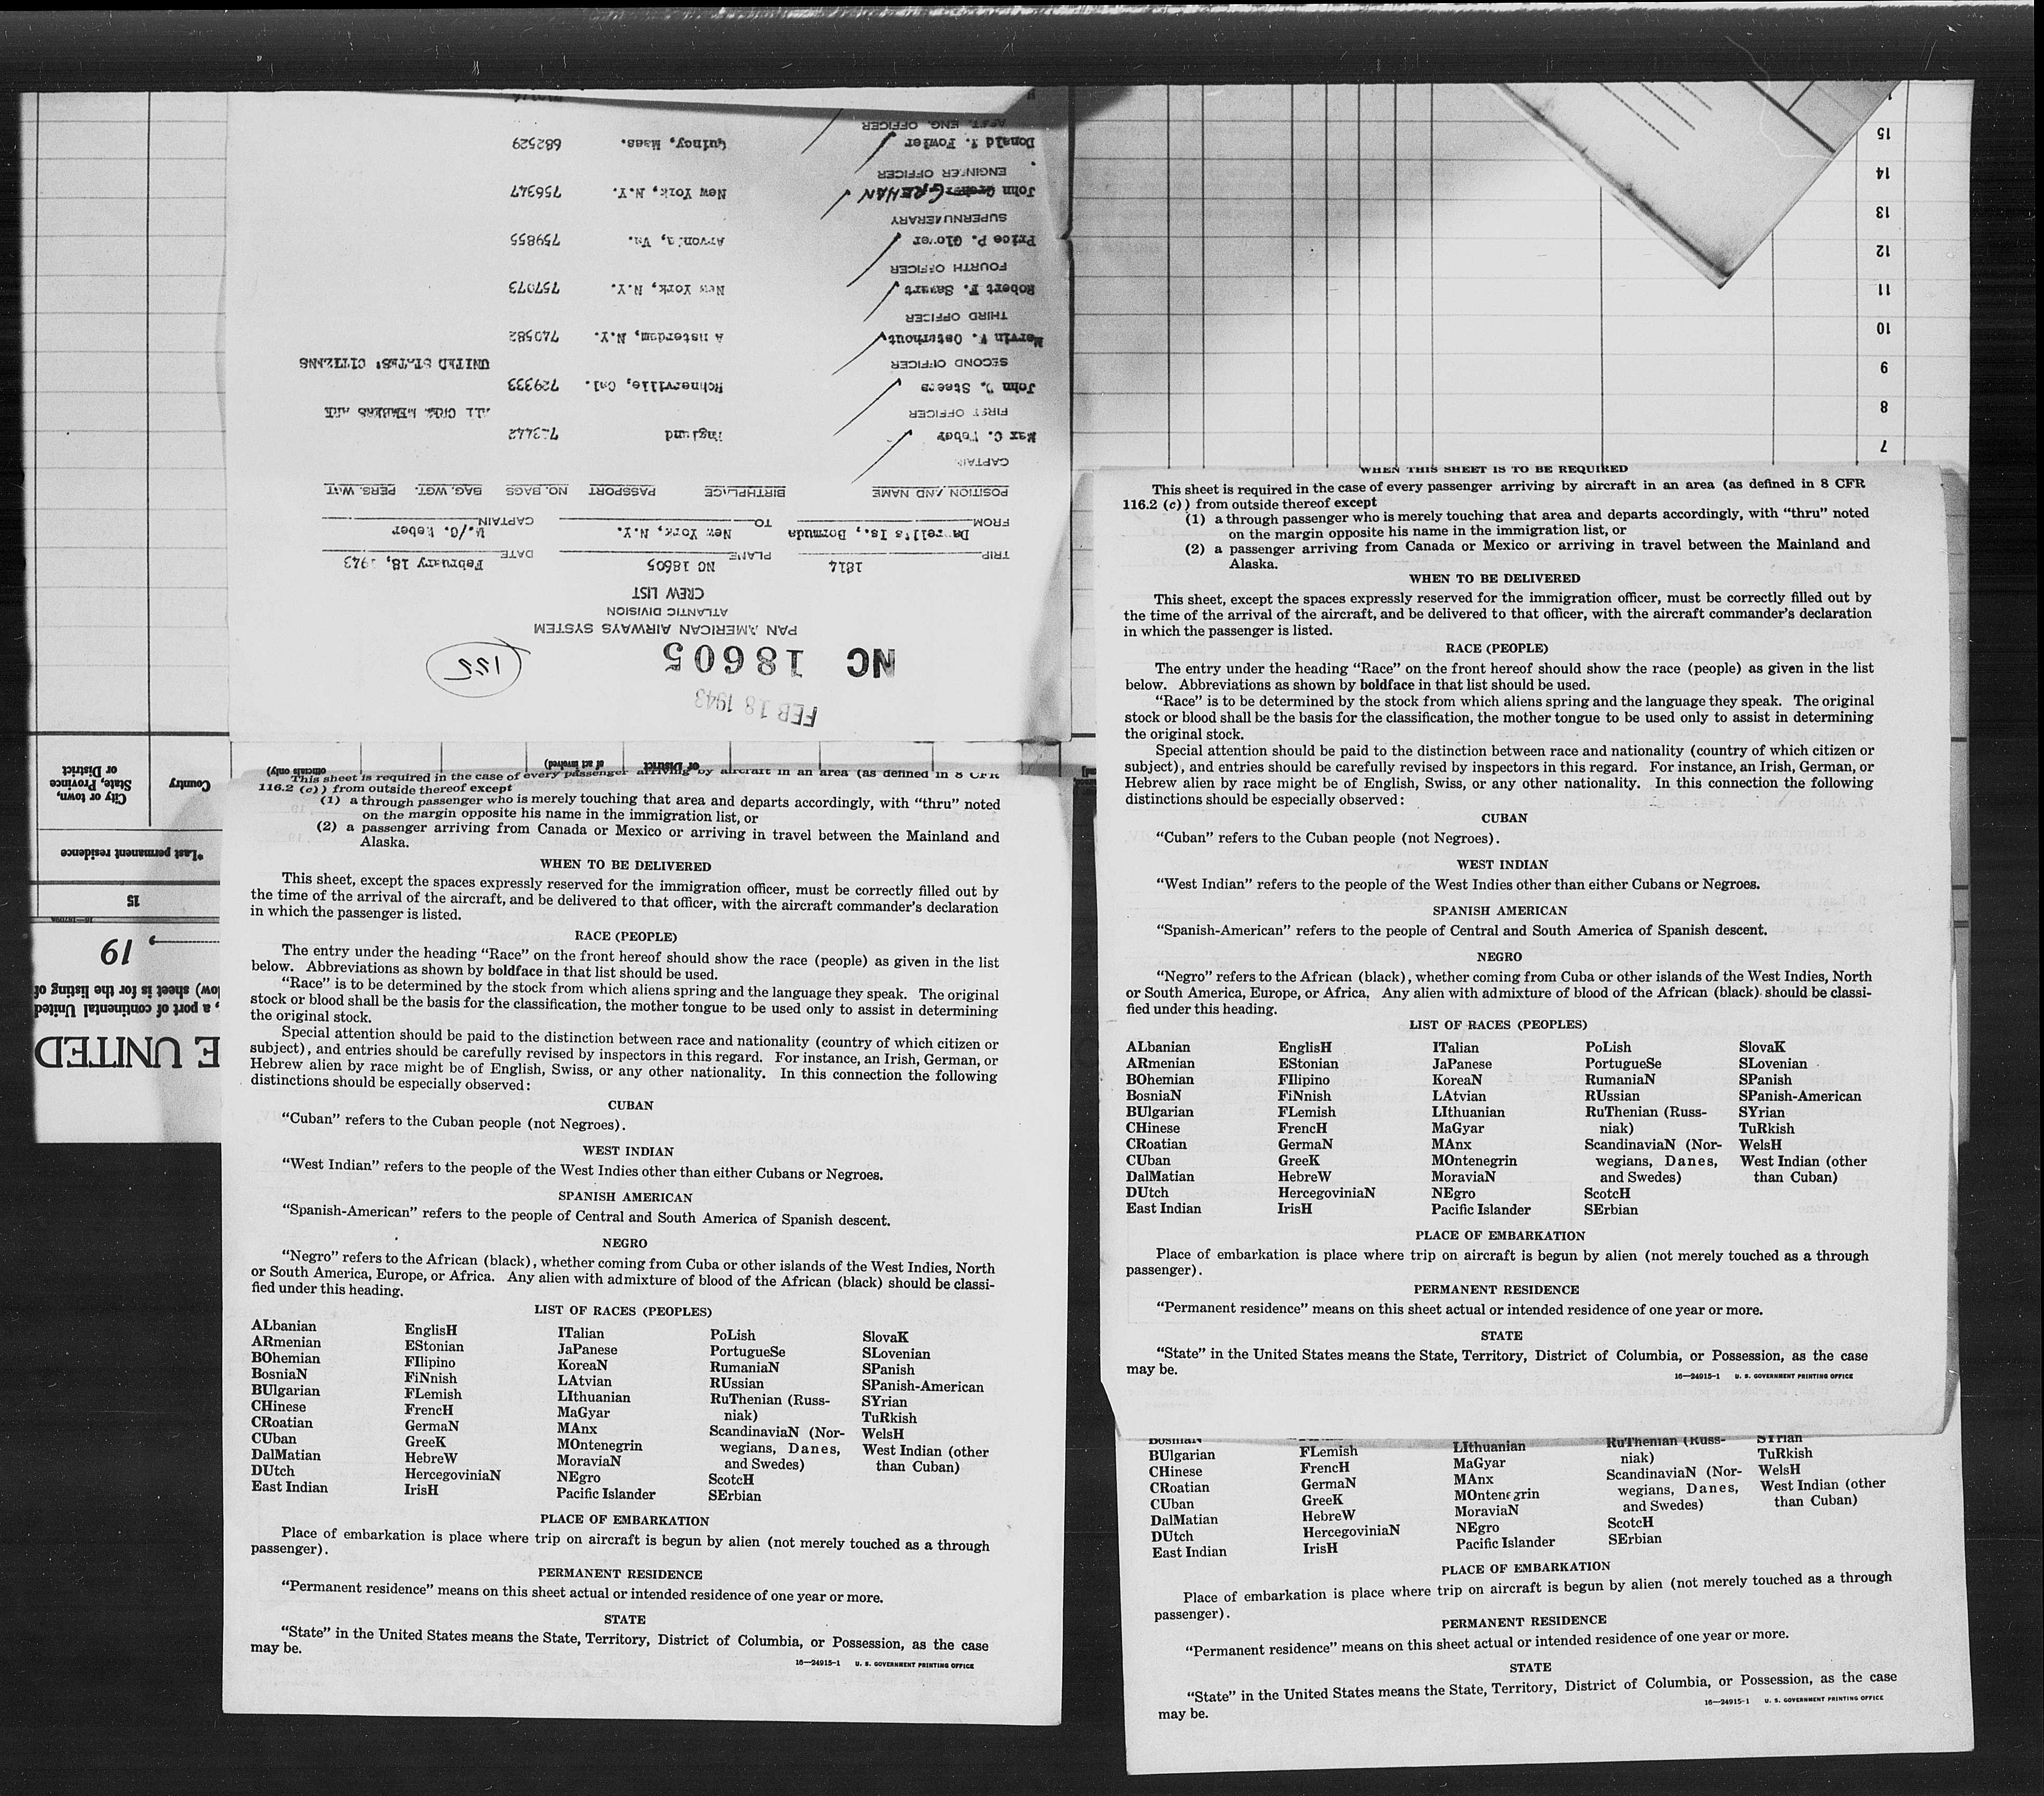 FEB 18 1943
NC 18605
155
PAN AMERICAN AIRWAYS SYSTEM
ATLANTIC DIVISION
CREW LIST
TRIP 1814 PLANE NC 18605 DATE February 18, 1943
FROM Darrell's Is., Bermuda TO New York, N.Y. CAPTAIN M./C. Weber
POSITION AND NAME BIRTHPLACE PASSPORT NO. BAGS BAG. WGT. PERS. WGT.
CAPTAIN
Max C. Weber England
FIRST OFFICER ALL CREW MEMBERS ARE
John D. Steers Rohnerville, Cal. 729333
SECOND OFFICER UNITED STATES' CITIZENS
Marvin V. Osterhout Amsterdam, N.Y. 740582
THIRD OFFICER
Robert F. Sawart New York, N.Y. 757073
FOURTH OFFICER
Price P. Glover Arvonia, Va. 759855
SUPERNUMERARY
John GREHAN New York, N.Y. 756347
ENGINEER OFFICER
Donald Fowler Quincy, Mass. 682529
ASST. ENG. OFFICER
7
8
9
10
11
12
13
14
15
E UNITED
, a port of continental United
low) sheet is for the listing of
, 19
15
*Last permanent residence
Country
City or town,
State, Province
or District
or District
of act involved)
officials only)
This sheet is required in the case of every passenger arriving by aircraft in an area (as defined in 8 CFR
116.2 (c)) from outside thereof except
(1) a through passenger who is merely touching that area and departs accordingly, with “thru” noted
on the margin opposite his name in the immigration list, or
(2) a passenger arriving from Canada or Mexico or arriving in travel between the Mainland and
Alaska.
WHEN TO BE DELIVERED
This sheet, except the spaces expressly reserved for the immigration officer, must be correctly filled out by
the time of the arrival of the aircraft, and be delivered to that officer, with the aircraft commander’s declaration
in which the passenger is listed.
RACE (PEOPLE)
The entry under the heading “Race” on the front hereof should show the race (people) as given in the list
below. Abbreviations as shown by boldface in that list should be used.
“Race” is to be determined by the stock from which aliens spring and the language they speak. The original
stock or blood shall be the basis for the classification, the mother tongue to be used only to assist in determining
the original stock.
Special attention should be paid to the distinction between race and nationality (country of which citizen or
subject), and entries should be carefully revised by inspectors in this regard. For instance, an Irish, German, or
Hebrew alien by race might be of English, Swiss, or any other nationality. In this connection the following
distinctions should be especially observed:
CUBAN
“Cuban” refers to the Cuban people (not Negroes).
WEST INDIAN
“West Indian” refers to the people of the West Indies other than either Cubans or Negroes.
SPANISH AMERICAN
“Spanish-American” refers to the people of Central and South America of Spanish descent.
NEGRO
“Negro” refers to the African (black), whether coming from Cuba or other islands of the West Indies, North
or South America, Europe, or Africa. Any alien with admixture of blood of the African (black) should be classi-
fied under this heading.
LIST OF RACES (PEOPLES)
ALbanian EnglisH ITalian PoLish SlovaK
ARmenian EStonian JaPanese PortugueSe SLovenian
BOhemian FIlipino KoreaN RumaniaN SPanish
BosniaN FiNnish LAtvian RUssian SPanish-American
BUlgarian FLemish LIthuanian RuThenian (Russ- SYrian
CHinese FrencH MaGyar niak) TuRkish
CRoatian GermaN MAnx ScandinaviaN (Nor- WelsH
CUban GreeK MOntenegrin wegians, Danes, West Indian (other
DalMatian HebreW MoraviaN and Swedes) than Cuban)
DUtch HercegoviniaN NEgro ScotcH
East Indian IrisH Pacific Islander SErbian
PLACE OF EMBARKATION
Place of embarkation is place where trip on aircraft is begun by alien (not merely touched as a through
passenger).
PERMANENT RESIDENCE
“Permanent residence” means on this sheet actual or intended residence of one year or more.
STATE
“State” in the United States means the State, Territory, District of Columbia, or Possession, as the case
may be.
16—24915-1 U. S. GOVERNMENT PRINTING OFFICE
WHEN THIS SHEET IS TO BE REQUIRED
This sheet is required in the case of every passenger arriving by aircraft in an area (as defined in 8 CFR
116.2 (c)) from outside thereof except
(1) a through passenger who is merely touching that area and departs accordingly, with “thru” noted
on the margin opposite his name in the immigration list, or
(2) a passenger arriving from Canada or Mexico or arriving in travel between the Mainland and
Alaska.
WHEN TO BE DELIVERED
This sheet, except the spaces expressly reserved for the immigration officer, must be correctly filled out by
the time of the arrival of the aircraft, and be delivered to that officer, with the aircraft commander’s declaration
in which the passenger is listed.
RACE (PEOPLE)
The entry under the heading “Race” on the front hereof should show the race (people) as given in the list
below. Abbreviations as shown by boldface in that list should be used.
“Race” is to be determined by the stock from which aliens spring and the language they speak. The original
stock or blood shall be the basis for the classification, the mother tongue to be used only to assist in determining
the original stock.
Special attention should be paid to the distinction between race and nationality (country of which citizen or
subject), and entries should be carefully revised by inspectors in this regard. For instance, an Irish, German, or
Hebrew alien by race might be of English, Swiss, or any other nationality. In this connection the following
distinctions should be especially observed:
CUBAN
“Cuban” refers to the Cuban people (not Negroes).
WEST INDIAN
“West Indian” refers to the people of the West Indies other than either Cubans or Negroes.
SPANISH AMERICAN
“Spanish-American” refers to the people of Central and South America of Spanish descent.
NEGRO
“Negro” refers to the African (black), whether coming from Cuba or other islands of the West Indies, North
or South America, Europe, or Africa. Any alien with admixture of blood of the African (black) should be classi-
fied under this heading.
LIST OF RACES (PEOPLES)
ALbanian EnglisH ITalian PoLish SlovaK
ARmenian EStonian JaPanese PortugueSe SLovenian
BOhemian FIlipino KoreaN RumaniaN SPanish
BosniaN FiNnish LAtvian RUssian SPanish-American
BUlgarian FLemish LIthuanian RuThenian (Russ- SYrian
CHinese FrencH MaGyar niak) TuRkish
CRoatian GermaN MAnx ScandinaviaN (Nor- WelsH
CUban GreeK MOntenegrin wegians, Danes, West Indian (other
DalMatian HebreW MoraviaN and Swedes) than Cuban)
DUtch HercegoviniaN NEgro ScotcH
East Indian IrisH Pacific Islander SErbian
PLACE OF EMBARKATION
Place of embarkation is place where trip on aircraft is begun by alien (not merely touched as a through
passenger).
PERMANENT RESIDENCE
“Permanent residence” means on this sheet actual or intended residence of one year or more.
STATE
“State” in the United States means the State, Territory, District of Columbia, or Possession, as the case
may be.
16—24915-1 U. S. GOVERNMENT PRINTING OFFICE
BosniaN RuThenian (Russ- SYrian
BUlgarian FLemish LIthuanian niak) TuRkish
CHinese FrencH MaGyar ScandinaviaN (Nor- WelsH
CRoatian GermaN MAnx wegians, Danes, West Indian (other
CUban GreeK MOntenegrin and Swedes) than Cuban)
DalMatian HebreW MoraviaN ScotcH
DUtch HercegoviniaN NEgro SErbian
East Indian IrisH Pacific Islander
PLACE OF EMBARKATION
Place of embarkation is place where trip on aircraft is begun by alien (not merely touched as a through
passenger).
PERMANENT RESIDENCE
“Permanent residence” means on this sheet actual or intended residence of one year or more.
STATE
“State” in the United States means the State, Territory, District of Columbia, or Possession, as the case
may be.
16—24915-1 U. S. GOVERNMENT PRINTING OFFICE